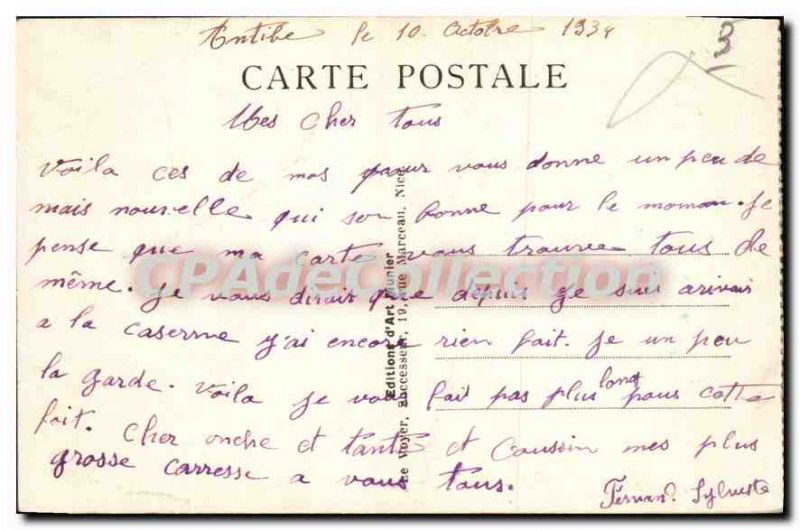 Antibe le 10 Octobre 1934
3
CARTE POSTALE
Mes Cher tous
Voila ces de mos pour vous donne un peu de
mais nouvelle qui son bonne pour le moman. Je
pense que ma carte vous trouve tous de
même. Je vous dirait que depuis je suis arivair
a la caserne j'ai encore rien fait. Je un peu
la garde. Voila je vous fait pas plus long pour cette
fait. Cher oncle et tante et Coussin mes plus
grosse carresse a vous tous.
Fernand Sylvestre
Editions d'Art Munier
Le Voyer, Successeur, 19, rue Marceau, Nice
CPAdeCollection.com